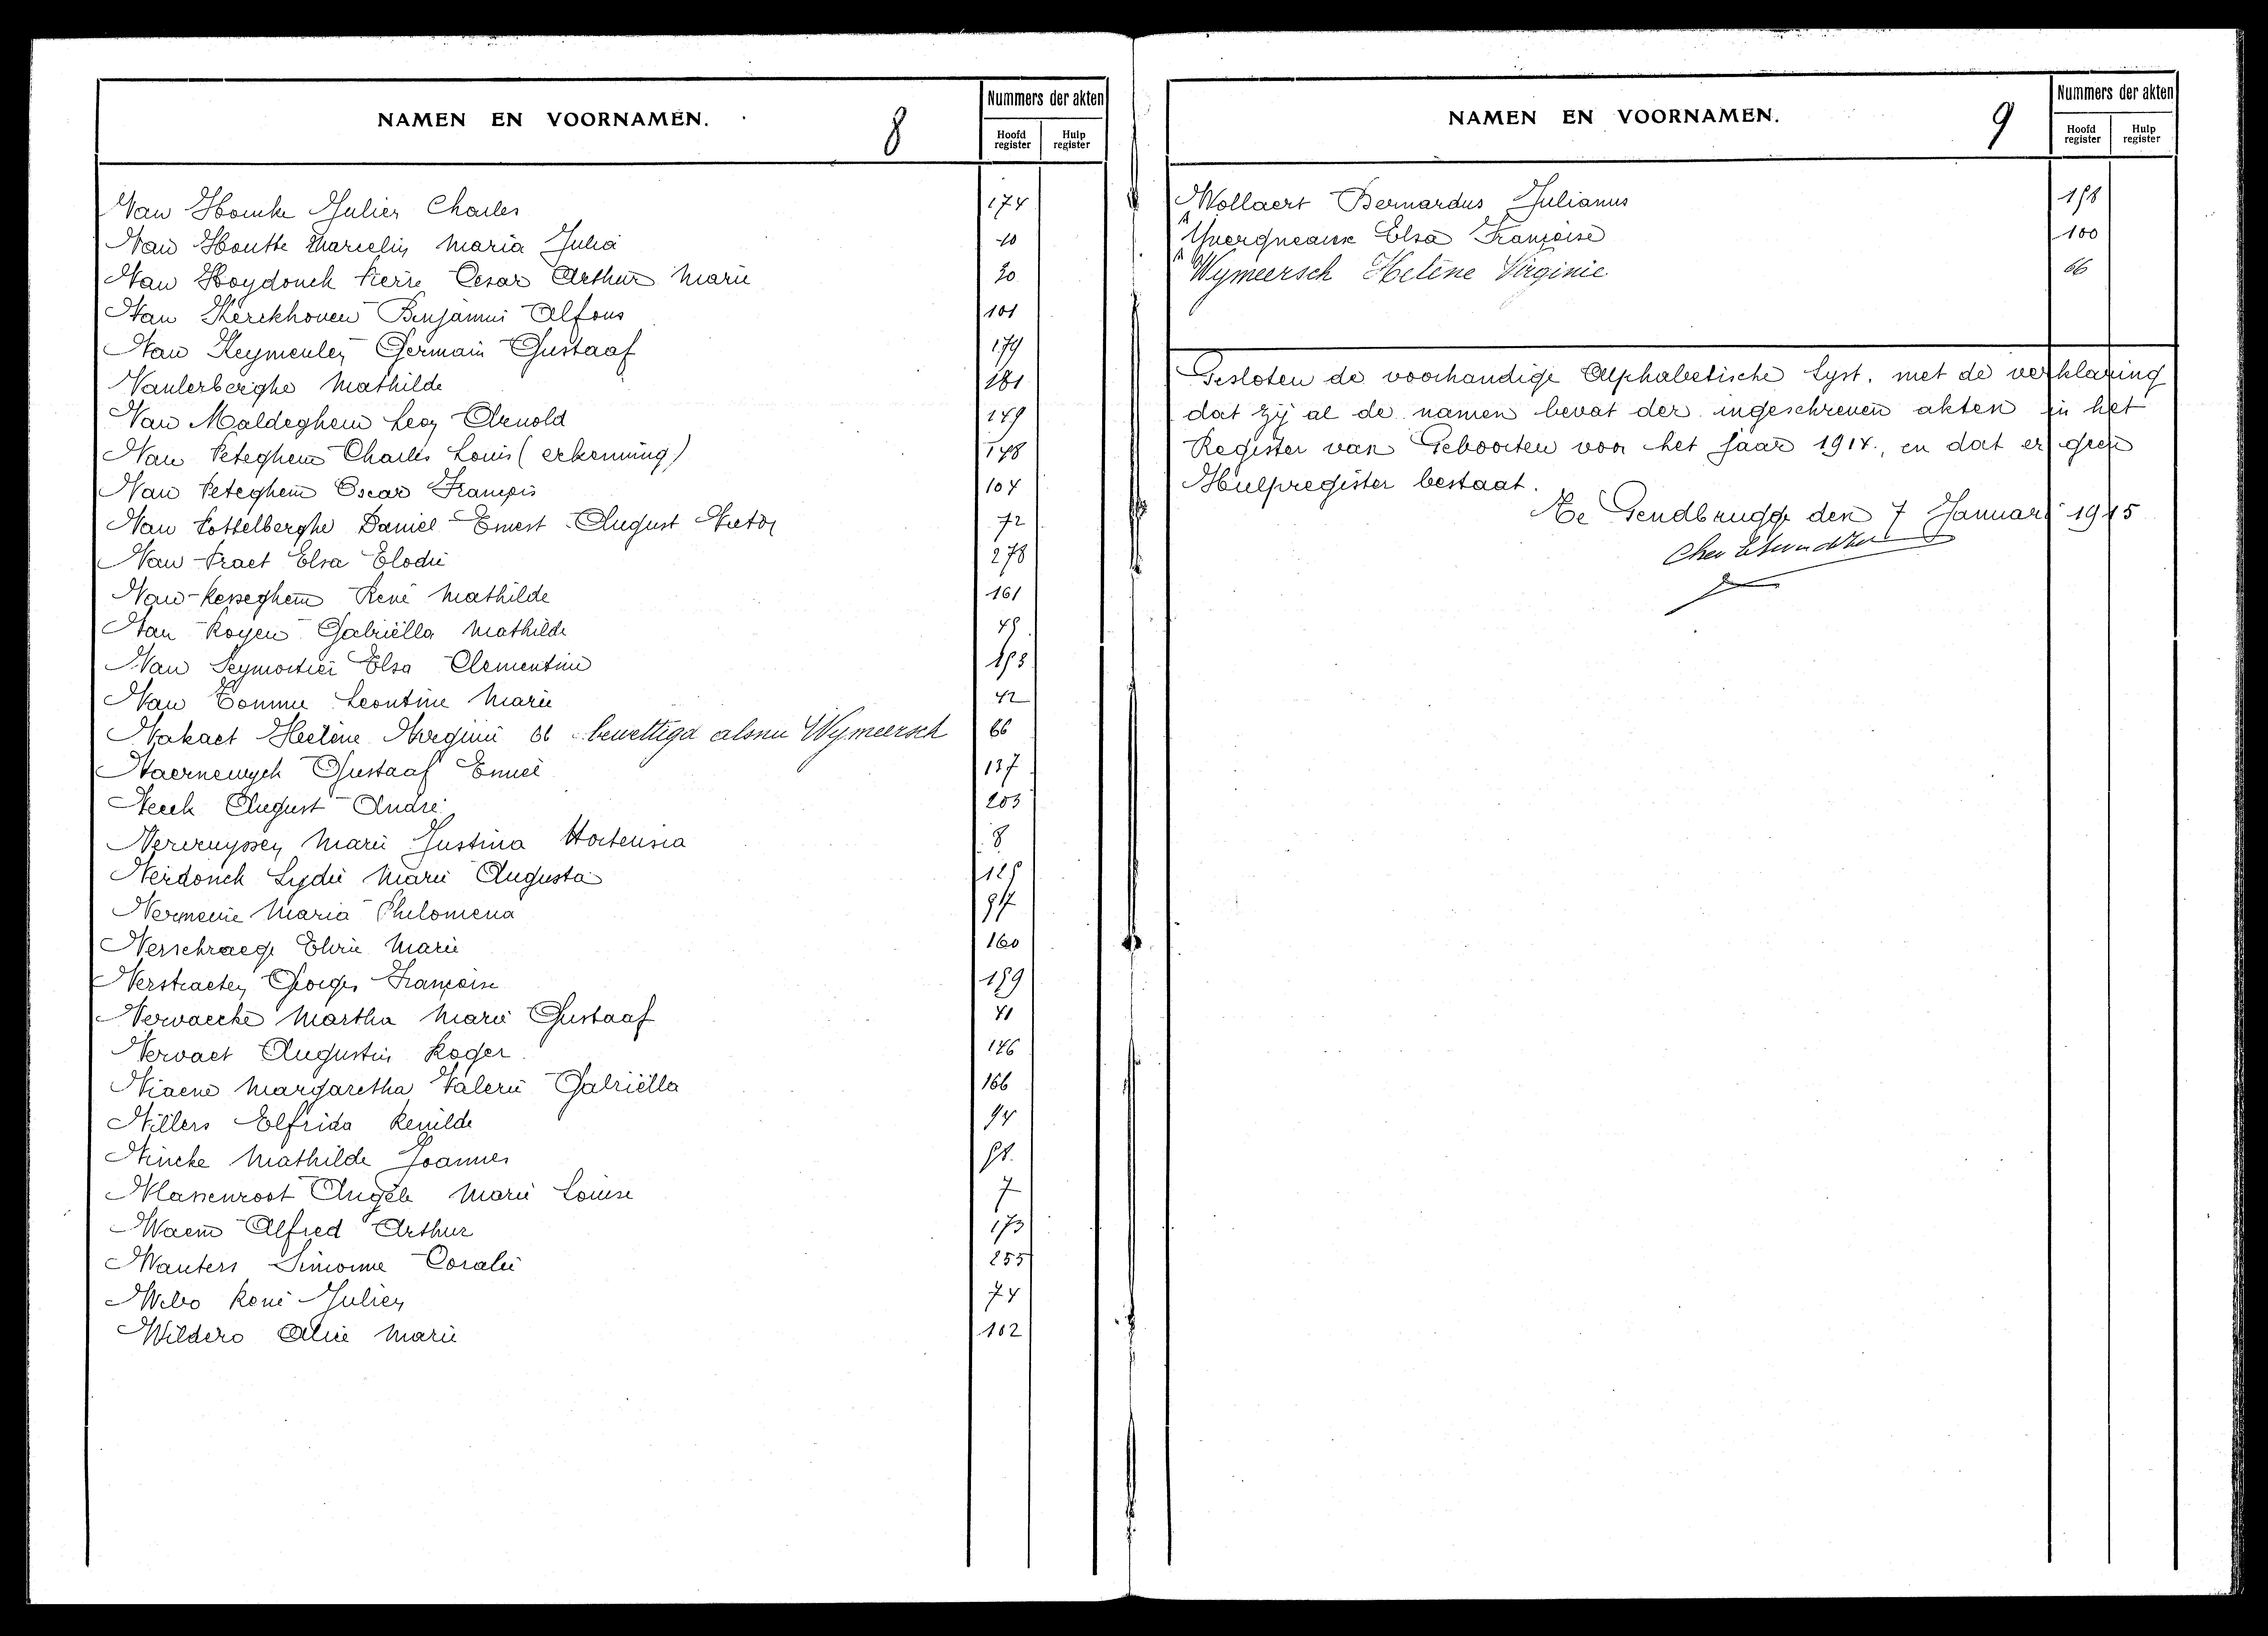 NAMEN EN VOORNAMEN.
8
Nummers der akten
Hoofd register
Hulp register
Van Houcke Julien Charles 174
Van Houtte Marcelin Maria Julia 10
Van Hoydonck Pierre Cesar Arthur Marie 30
Van Kerckhoven Benjamin Alfons 101
Van Keymeulen Germain Gustaaf 179
Vanlerberghe Mathilde 181
Van Maldeghem Leon Arnold 149
Van Peteghem Charles Louis (erkenning) 148
Van Peteghem Oscar François 104
Van Pottelberghe Daniel Ernest August Victor 72
Van Praet Elsa Elodie 278
Van Resseghem René Mathilde 161
Van Royen Gabriëlla Mathilde 49
Van Seymortier Elsa Clementine
Van Tomme Leontine Marie 42
Vakaet Helène Virginie 66 bewettigd als nu Wymeersch 66
Vaernewyck Gustaaf Emiel 137
Veeck August André 203
Vercruyssen Marie Justina Hortensia 8
Verdonck Lydie Marie Augusta
Vermeire Maria Philomena 97
Verschraege Elvie Marie 160
Verstraeten Georges Françoise 159
Vervaecke Martha Marie Gustaaf 41
Vervaet Augustin Roger 146
Viaene Margaretha Valerie Gabriëlla 166
Villers Elfrida Renilde 94
Vincke Mathilde Joannes
Vlassenroot Angèle Marie Louise 7
Waem Alfred Arthur 173
Wauters Simonne Coralie 255
Webo René Julien 74
Wildero Alice Marie 102
NAMEN EN VOORNAMEN.
9
Nummers der akten
Hoofd register
Hulp register
Wollaert Bernardus Julianus 158
Elsa Françoise 100
Wymeersch Helène Virginie 66
Gesloten de voorhandige Alphabetische Lyst, met de verklaring
dat zij al de namen bevat der ingeschreven akten in het
Register van Geboorten voor het jaar 1914., en dat er geen
Hulpregister bestaat.
Te Gendbrugge den 7 Januari 1915